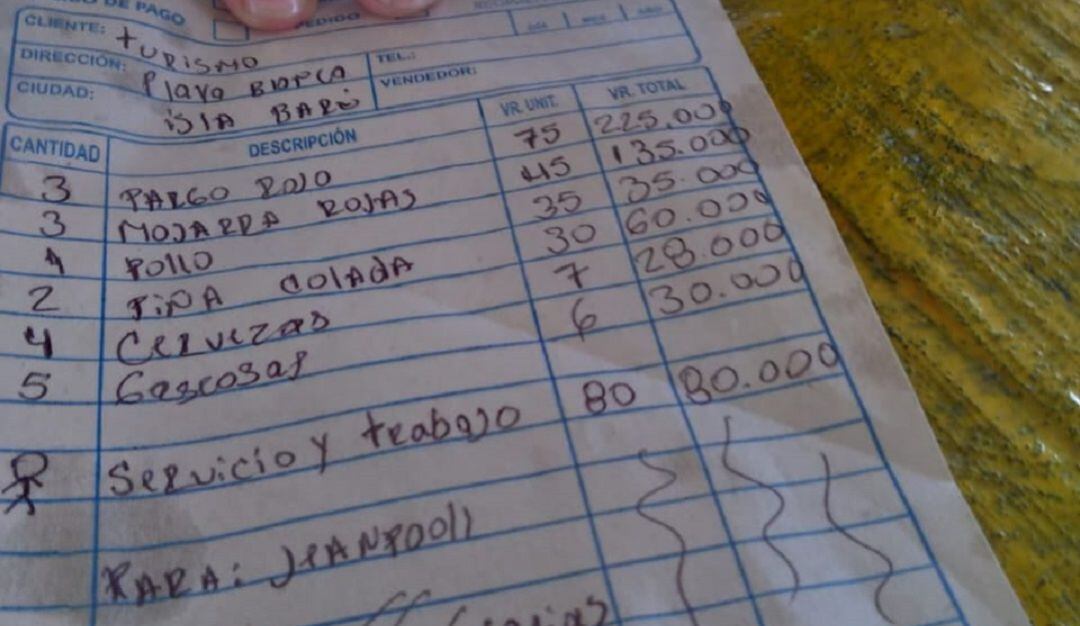 DE PAGO PEDIDO
CLIENTE: tURISMO
DIRECCIÓN: Playa BlAnCA TEL.:
CIUDAD: iSlA BARÚ VENDEDOR:
CANTIDAD DESCRIPCIÓN VR. UNIT. VR. TOTAL
3 PARGO ROJO 75 225.000
3 MOJARRA ROJAS 45 135.000
1 POllO 35 35.000
2 PIÑA COlAdA 30 60.000
4 CERVEZAS 7 28.000
5 GASCOSAS 6 30.000
SERVICIO Y tRABAJO 80 80.000
PARA: JHANPOOll